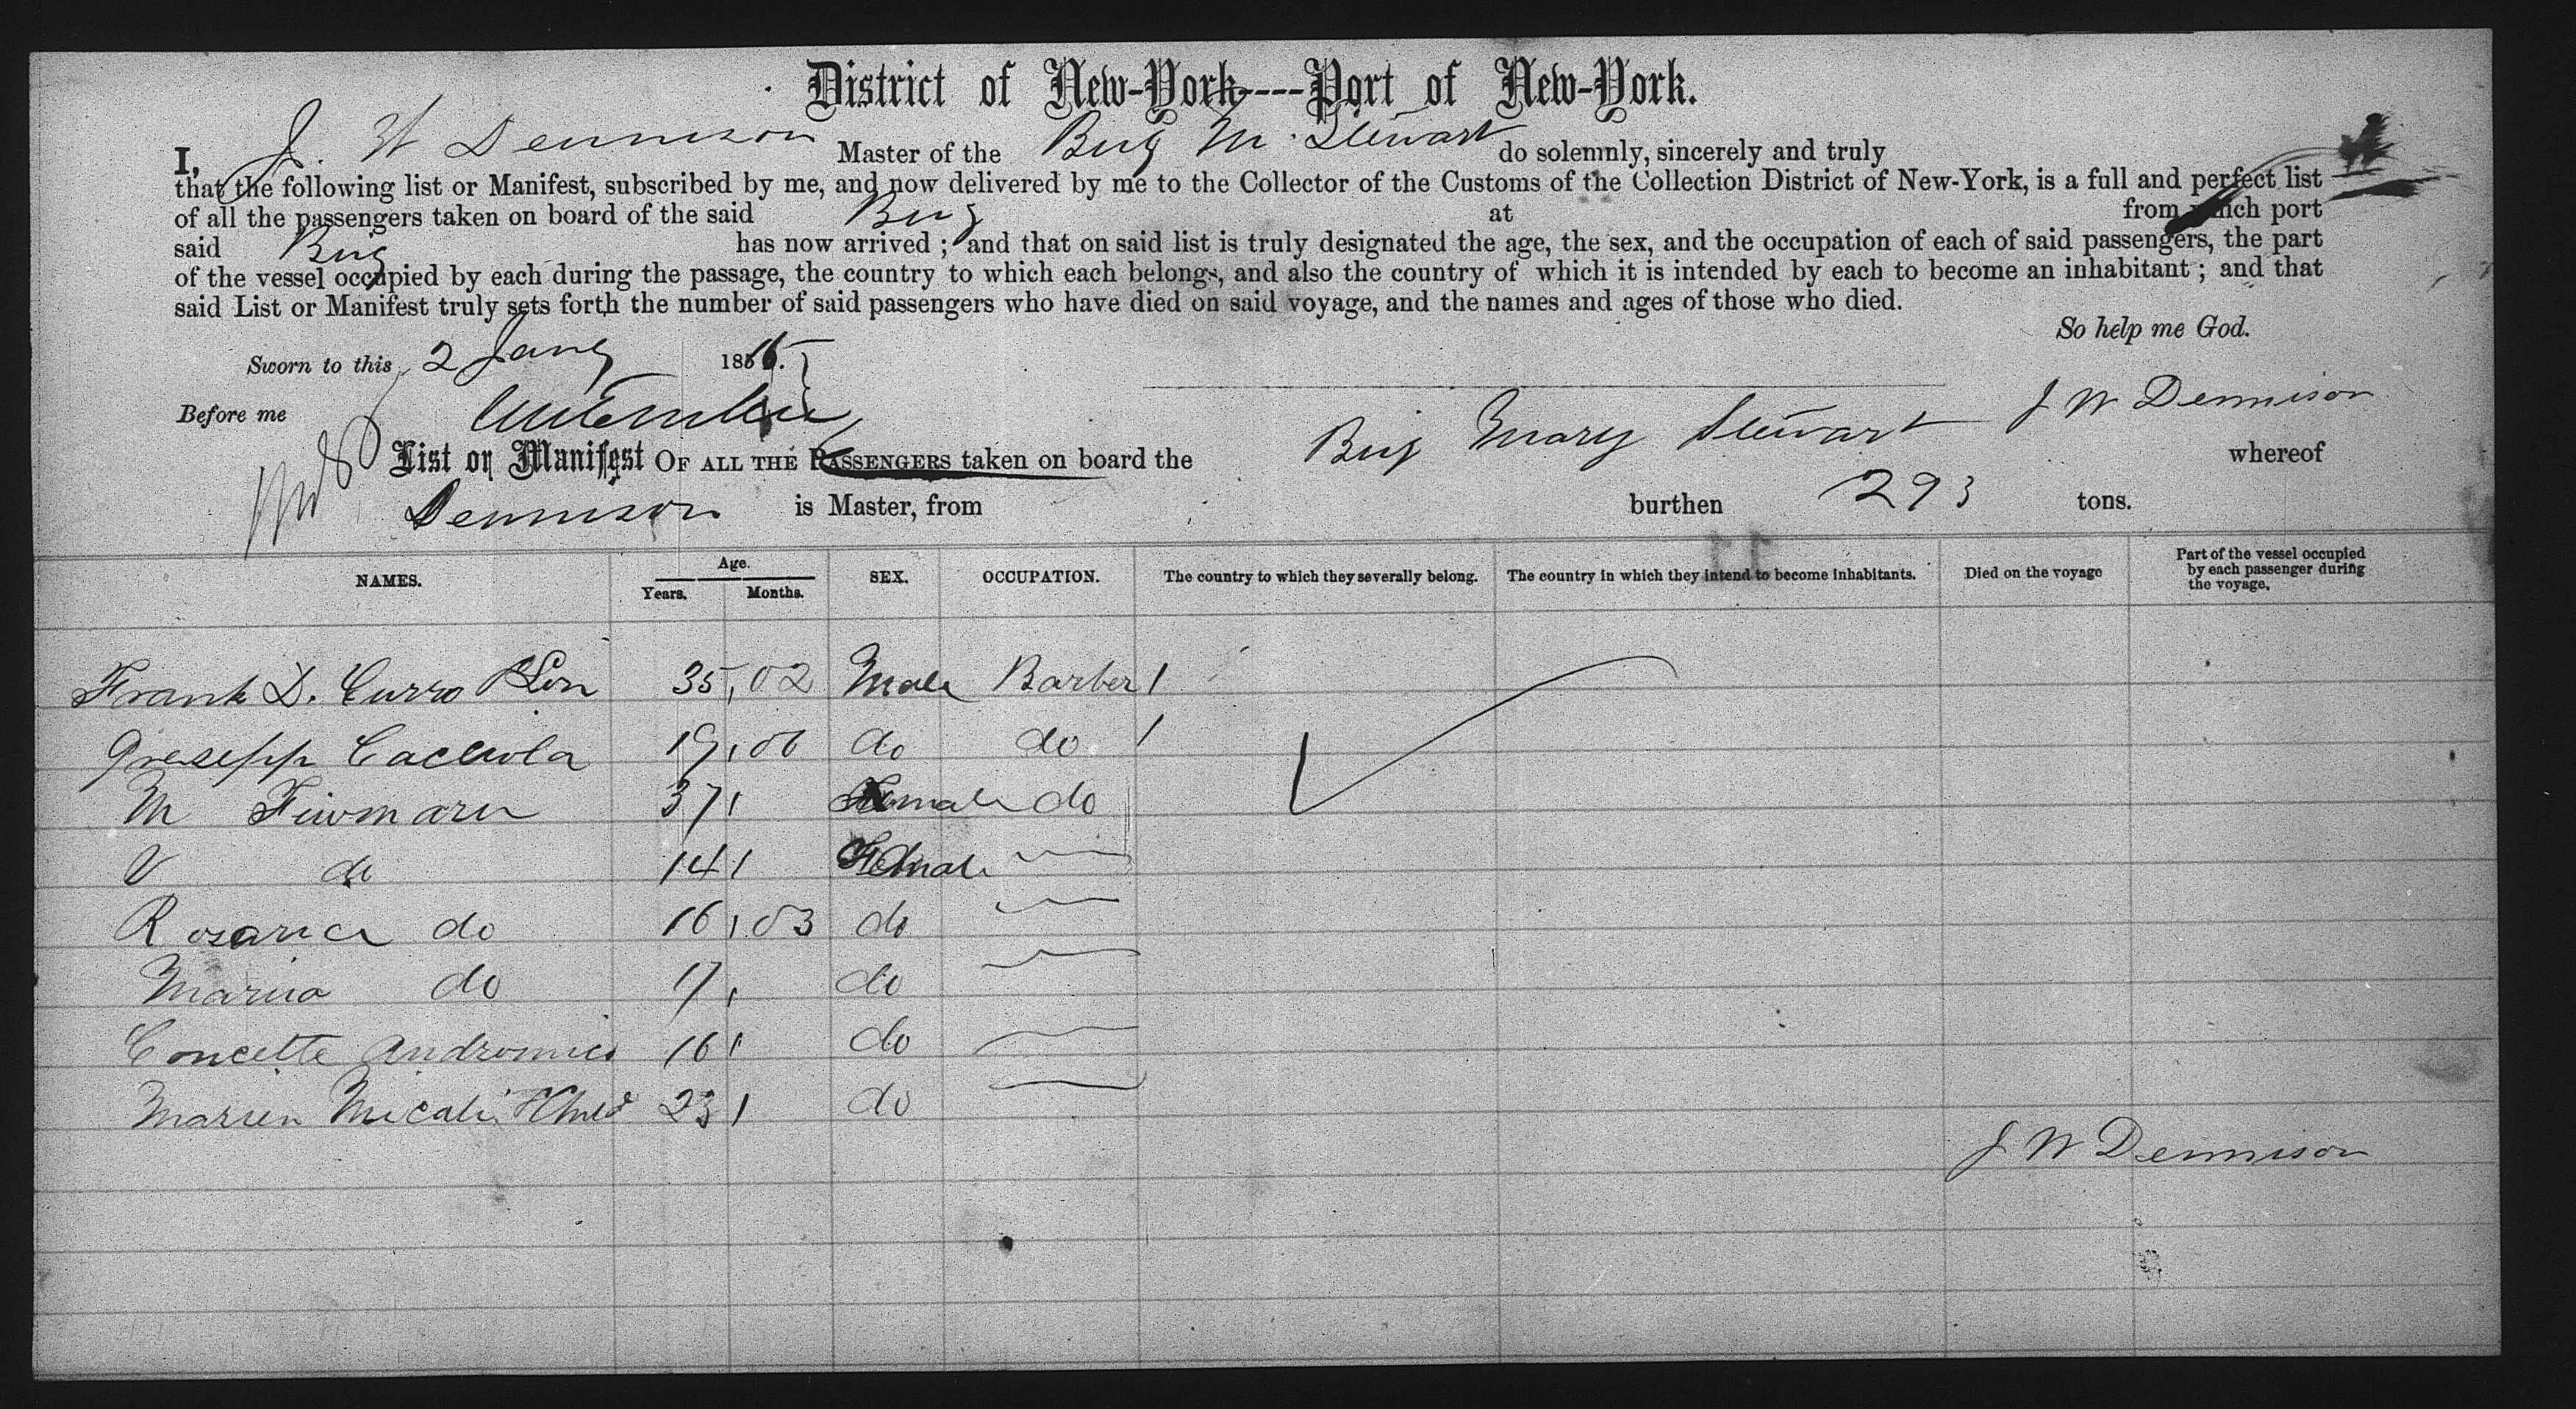 District of New-York----Port of New-York.
I, J. W Dennison Master of the Brig M. Stewart do solemnly, sincerely and truly
that the following list or Manifest, subscribed by me, and now delivered by me to the Collector of the Customs of the Collection District of New-York, is a full and perfect list
of all the passengers taken on board of the said Brig at from which port
said Brig has now arrived ; and that on said list is truly designated the age, the sex, and the occupation of each of said passengers, the part
of the vessel occupied by each during the passage, the country to which each belongs, and also the country of which it is intended by each to become an inhabitant ; and that
said List or Manifest truly sets forth the number of said passengers who have died on said voyage, and the names and ages of those who died.
So help me God.
Sworn to this 2 Jany 186
Before me J W Dennison
List or Manifest OF ALL THE PASSENGERS taken on board the Brig Mary Stewart whereof
Dennison is Master, from burthen 293 tons.
NAMES. Age. Years. Months. SEX. OCCUPATION. The country to which they severally belong. The country in which they intend to become inhabitants. Died on the voyage Part of the vessel occupied by each passenger during the voyage.
Frank D. Curro & Son 35 02 Male Barber 1
Cacciola 19 06 do do 1
M 37 Female do
V do 14 Female
Rosaria do 16 03 do
Maria do 17 do
Concette Andronico 16 do
Micali & Child 23 do
J W Dennison